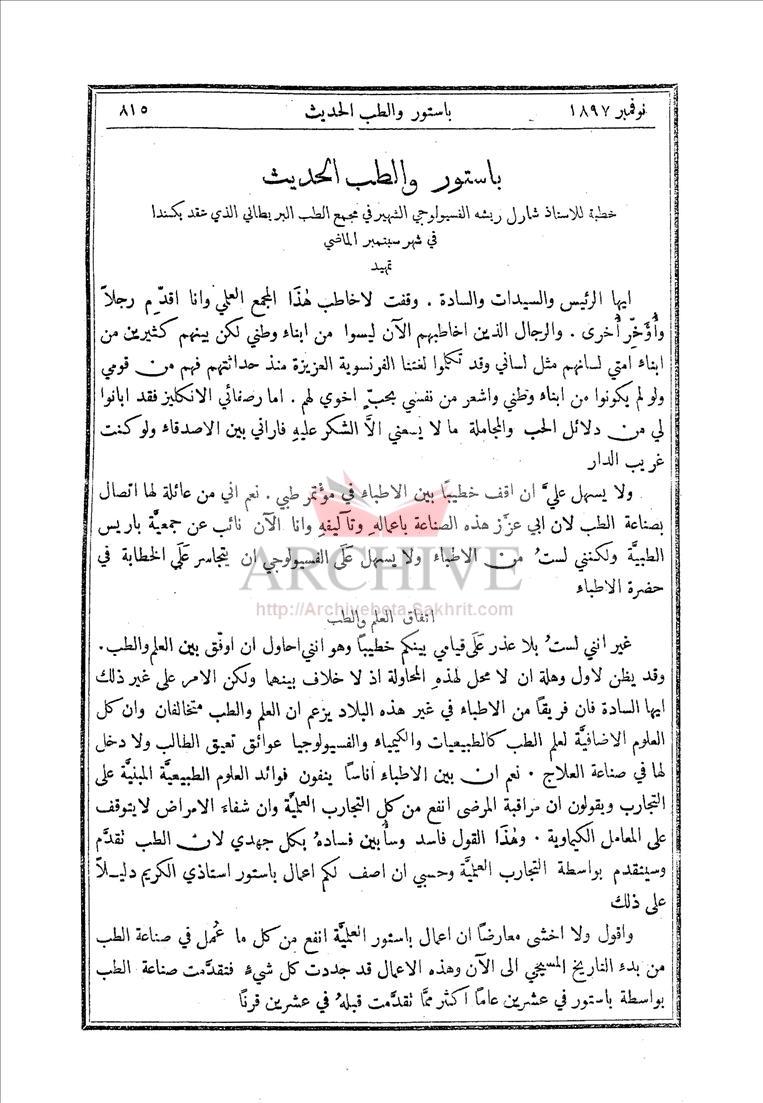 نوفمبر ١٨٩٧ باستور والطب الحديث ٨١٥
باستور والطب الحديث
خطبة للاستاذ شارل ريشه الفسيولوجي الشهير في مجمع الطب البريطاني الذي عقد بكندا
في شهر سبتمبر الماضي
تمهيد
ايها الرئيس والسيدات والسادة . وقفت لاخاطب هٰذا المجمع العلمي وانا اقدّم رجلاً
وأُؤَخِّر أُخرى . والرجال الذين اخاطبهم الآن ليسوا من ابناء وطني لكن بينهم كثيرين من
ابناء امتي لسانهم مثل لساني وقد تكلموا لغتنا الفرنسوية العزيزة منذ حداثتهم فهم من قومي
ولو لم يكونوا من ابناء وطني واشعر من نفسي بحبٍّ اخوي لهم . اما رصفائي الانكليز فقد ابانوا
لي من دلائل الحب والمجاملة ما لا يسعني الاَّ الشكر عليهِ فاراني بين الاصدقاء ولو كنت
غريب الدار
ولا يسهل عليَّ ان اقف خطيبًا بين الاطباء في مؤتمر طبي . نعم اني من عائلة لها اتصال
بصناعة الطب لان ابي عزَّز هذه الصناعة باعماله وتآليفهِ وانا الآن نائب عن جمعيَّة باريس
الطبيَّة ولكنني لستُ من الاطباء ولا يسهل عَلَى الفسيولوجي ان يتجاسر عَلَى الخطابة في
حضرة الاطباء
ARCHIVE
http://Archivebeta.Sakhrit.com
اتفاق العلم والطب
غير انني لستُ بلا عذر عَلَى قيامي بينكم خطيبًا وهو انني احاول ان اوفّق بين العلم والطب .
وقد يظن لاول وهلة ان لا محل لهٰذهِ المحاولة اذ لا خلاف بينهما ولكن الامر على غير ذلك
ايها السادة فان فريقًا من الاطباء في غير هذه البلاد يزعم ان العلم والطب متخالفان وان كل
العلوم الاضافيَّة لعلم الطب كالطبيعيات والكيمياء والفسيولوجيا عوائق تعيق الطالب ولا دخل
لها في صناعة العلاج . نعم ان بين الاطباء اناسًا ينفون فوائد العلوم الطبيعيَّة المبنيَّة على
التجارب ويقولون ان مراقبة المرضى انفع من كل التجارب العلميَّة وان شفاء الامراض لا يتوقف
على المعامل الكيماوية . وهٰذا القول فاسد وسأُبين فسادهُ بكل جهدي لان الطب تقدَّم
وسيتقدم بواسطة التجارب العلميَّة وحسبي ان اصف لكم اعمال باستور استاذي الكريم دليـلاً
على ذلك
واقول ولا اخشى معارضًا ان اعمال باستور العلميَّة انفع من كل ما عُمل في صناعة الطب
من بدء التاريخ المسيحي الى الآن وهذه الاعمال قد جددت كل شيءٍ فتقدَّمت صناعة الطب
بواسطة باستور في عشرين عامًا أكثر ممَّا تقدَّمت قبلهُ في عشرين قرنًا